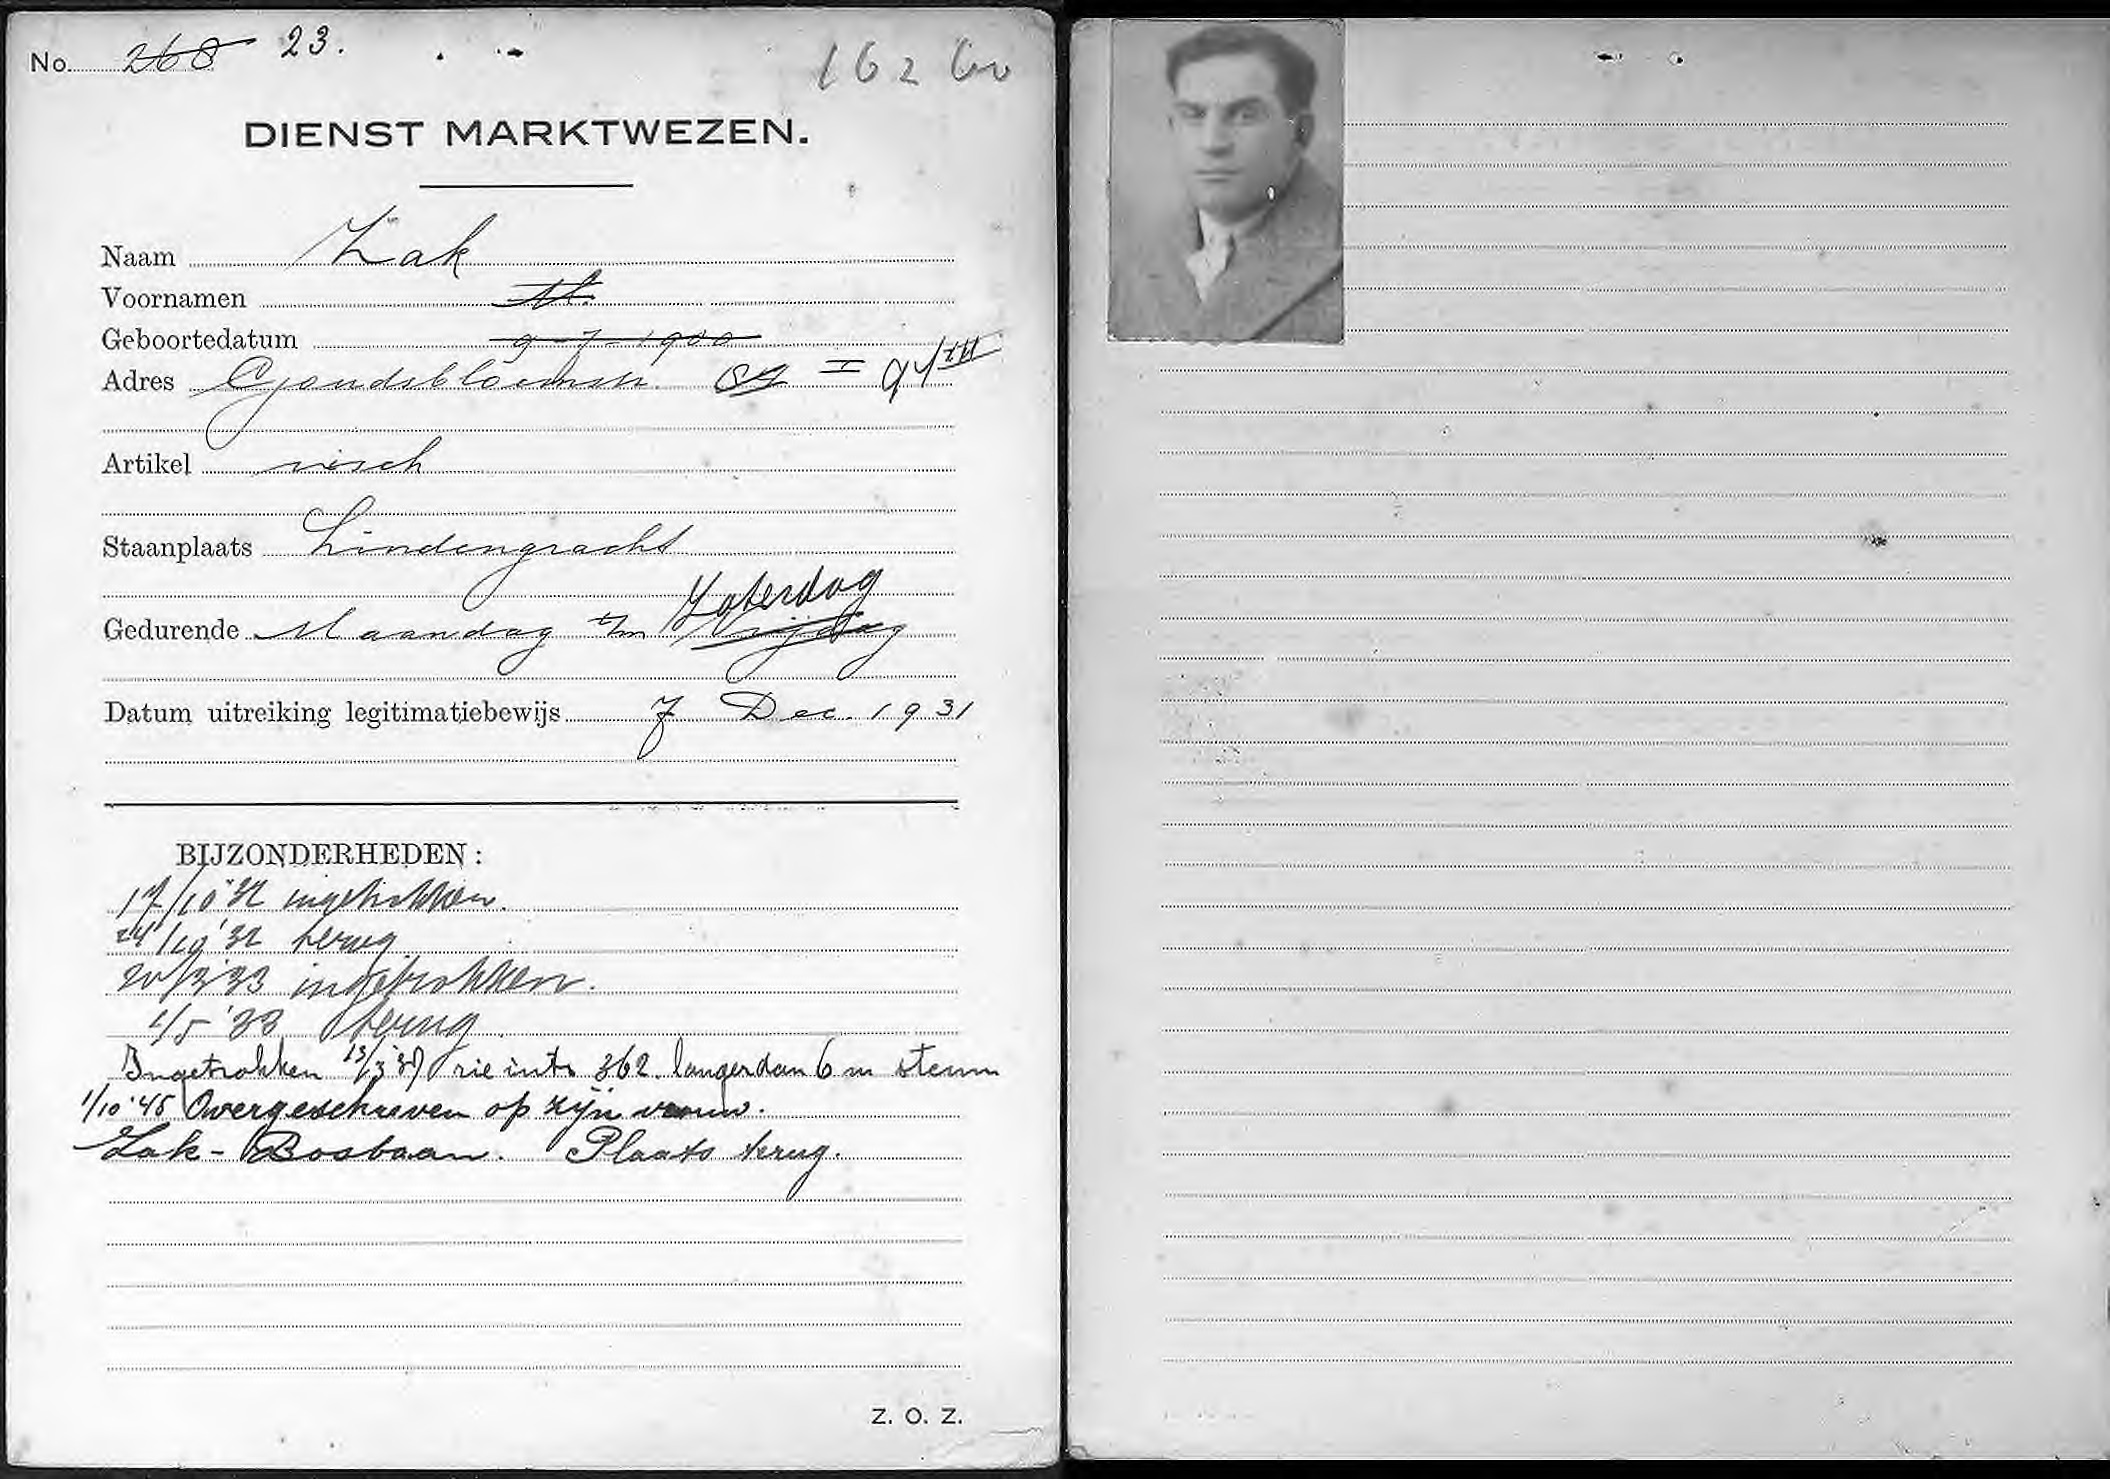 No. 268 23.
DIENST MARKTWEZEN.
Naam Zak
Voornamen M.
Geboortedatum 9-7-1900
Adres Goudsbloemstr. 87 I 94 III
Artikel visch
Staanplaats Lindengracht
Zaterdag
Gedurende Maandag t/m Vrijdag
Datum uitreiking legitimatiebewijs 7 Dec. 1931
BIJZONDERHEDEN:
17/10 '32 ingetrokken.
24/10 '32 terug
20/3 '33 ingetrokken.
1/5 '33 terug
Ingetrokken 13/3 zie 362 langer dan 6 m steun
1/10 '45 Overgeschreven op zijn vrouw.
Zak-Bosbaan. Plaats terug.
Z. O. Z.